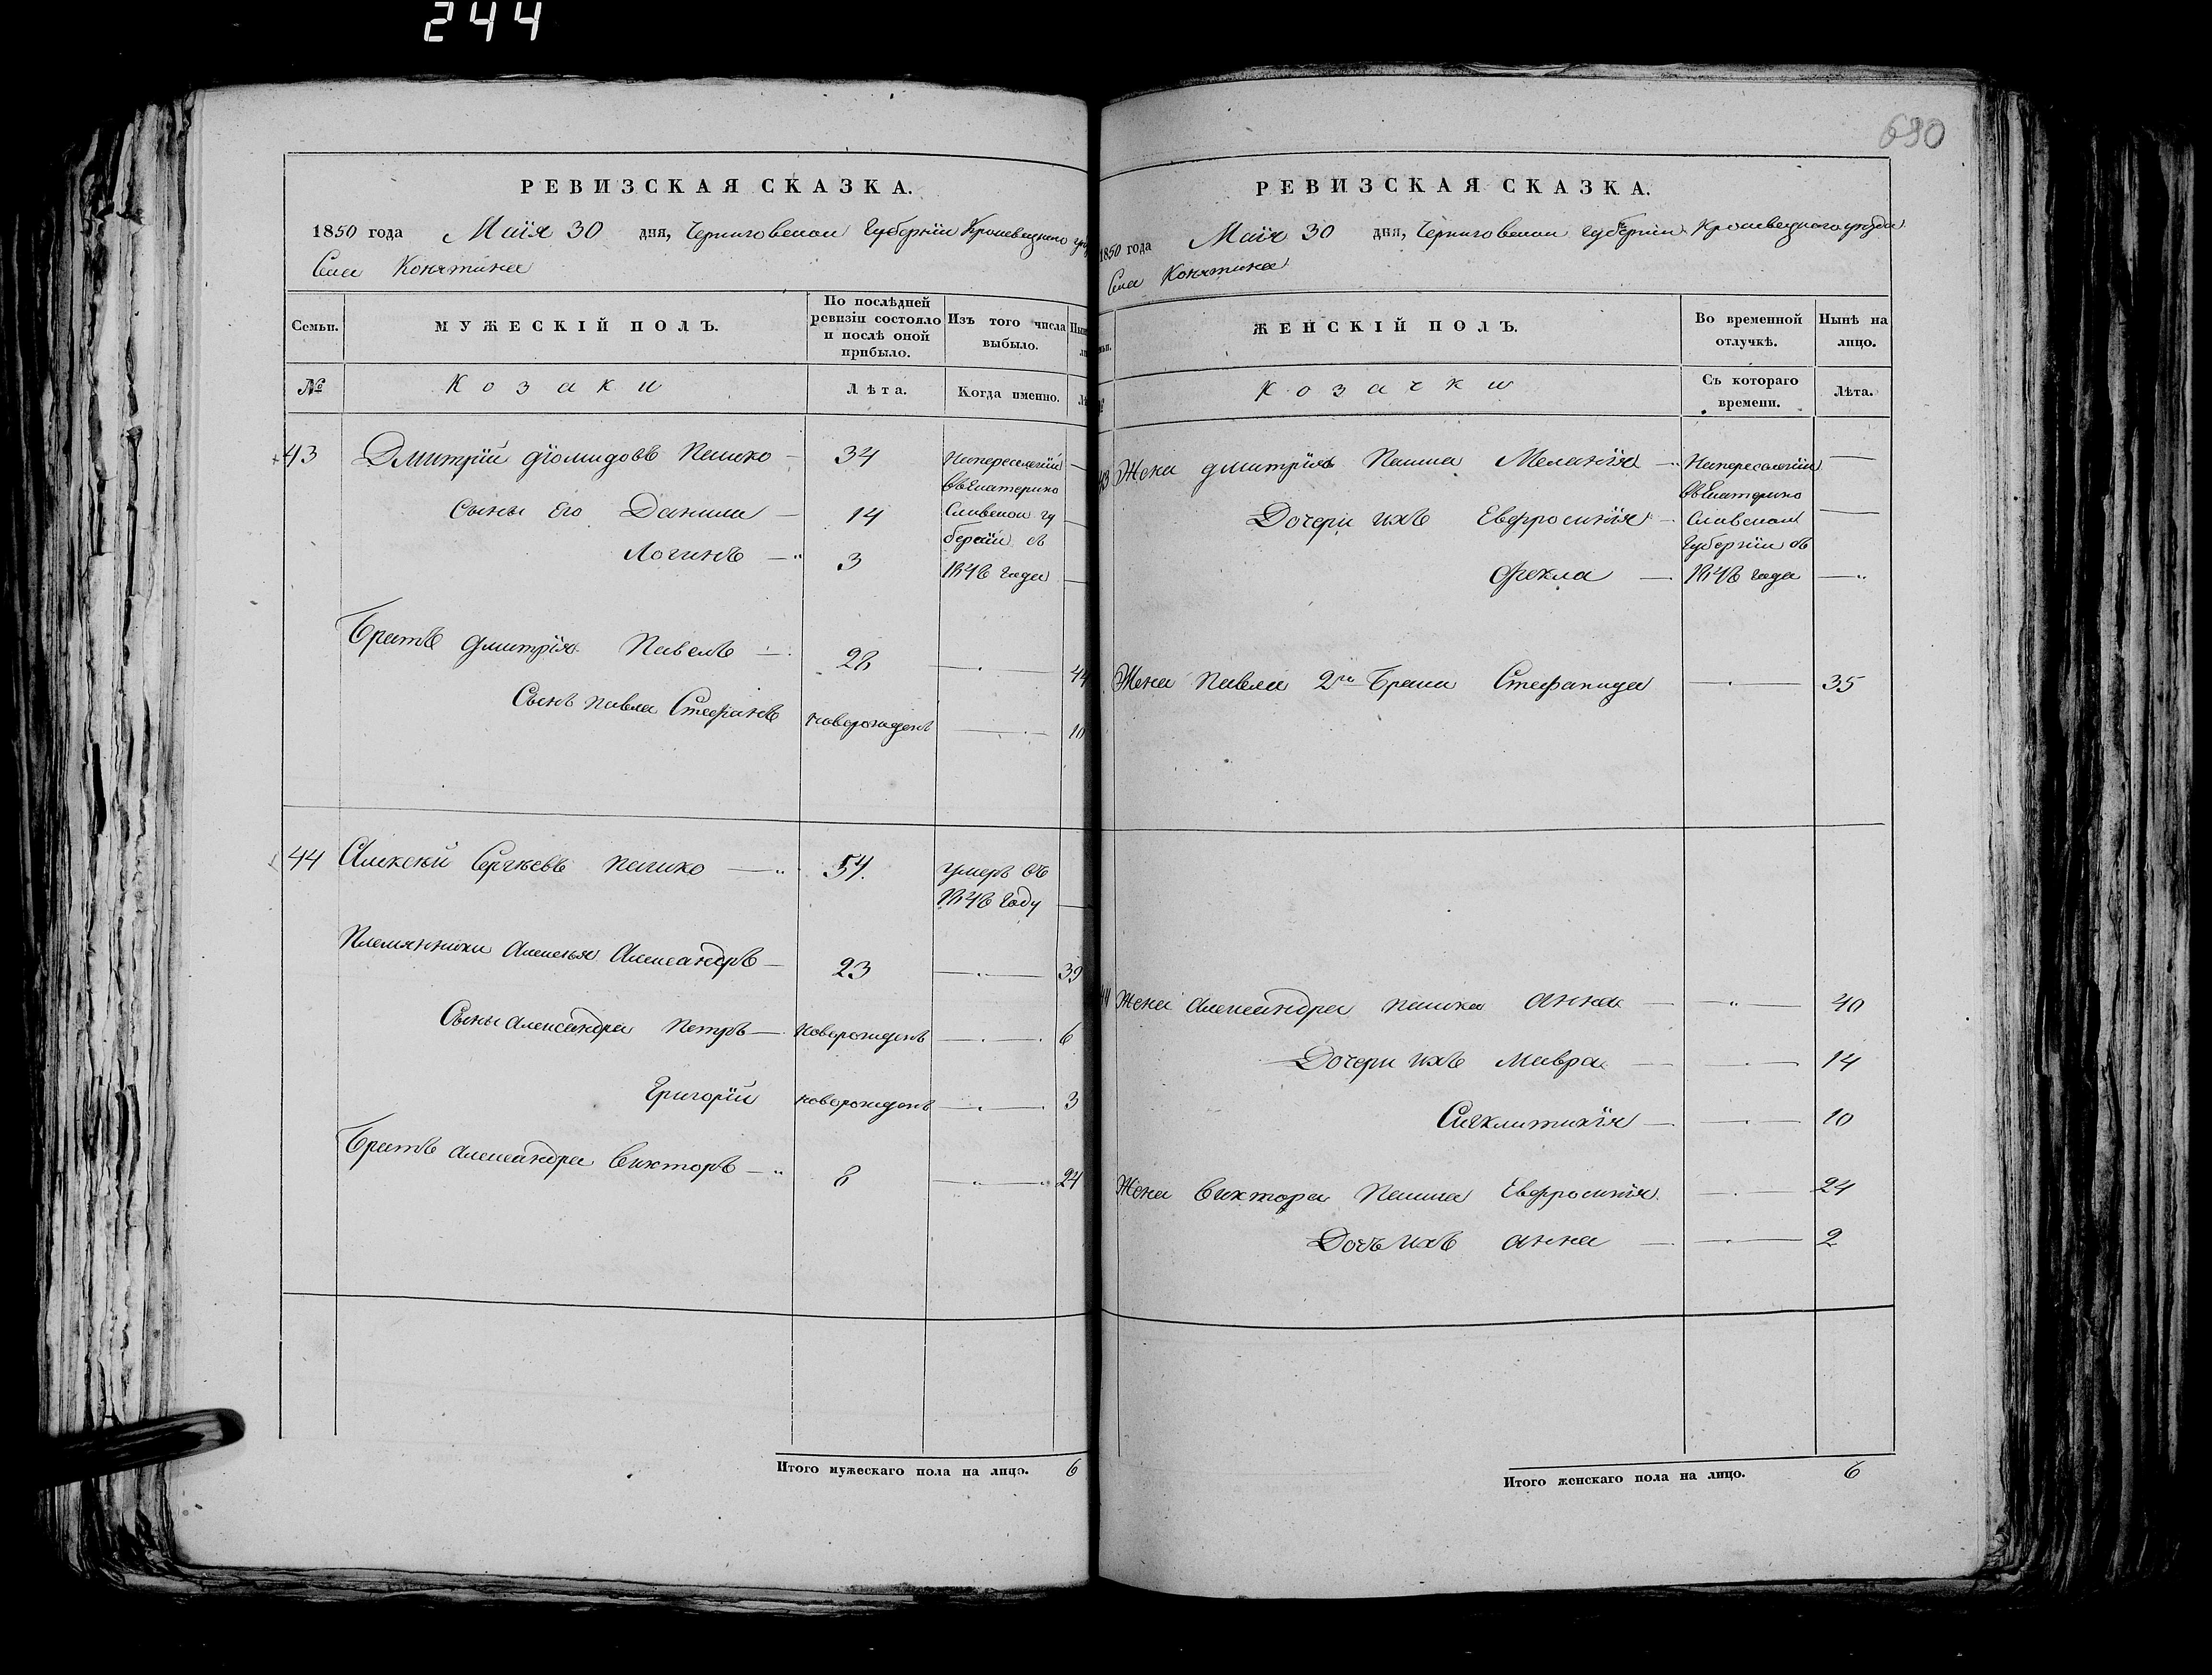 244
690
РЕВИЗСКАЯ СКАЗКА.
1850 года Маія 30 дня, Черниговской Губерніи Кролевецкаго
Села Конятина
Семьи. МУЖЕСКІЙ ПОЛЪ. По послѣдней ревизіи состояло и послѣ оной прибыло. Изъ того числа выбыло.
№ Козаки Лѣта. Когда именно.
43 Дмитрій Діомидовъ Пашко 34 На переселеніи
въ Екатерино
Сыны его Данило 14 Славской гу
берніи съ
Логинъ 3 1848 года
Братъ Дмитрія Павелъ 28 44
Сынъ Павла Стефанъ новорожденъ 10
44 Алексѣй Сергѣевъ Пашко 54. умеръ въ
1848 году
Племянники Алексѣя Александръ 23 39
Сыны Александра Петръ новорожденъ 6
Григорій новорожденъ 3
Братъ Александра Викторъ 8 24
Итого мужескаго пола на лицо. 6
РЕВИЗСКАЯ СКАЗКА.
1850 года Маія 30 дня, Черниговской Губерніи Кролевецкаго уѣзда
Села Конятина
ЖЕНСКІЙ ПОЛЪ. Во временной отлучкѣ. Нынѣ на лицо.
Козачки Съ котораго времени. Лѣта.
43 Жена Дмитрія Пашка Меланія На переселеніи
въ Екатерино
Дочери ихъ Евфросинія Славской
Губерніи съ
Фекла 1848 года
Жена Павла 2го Брата Стефанида 35
44 Жена Александра Пашка Анна 40
Дочери ихъ Мавра 14
Сигклитикія 10
Жена Виктора Пашка Евфросинія 24
Дочь ихъ Анна 2
Итого женскаго пола на лицо. 6